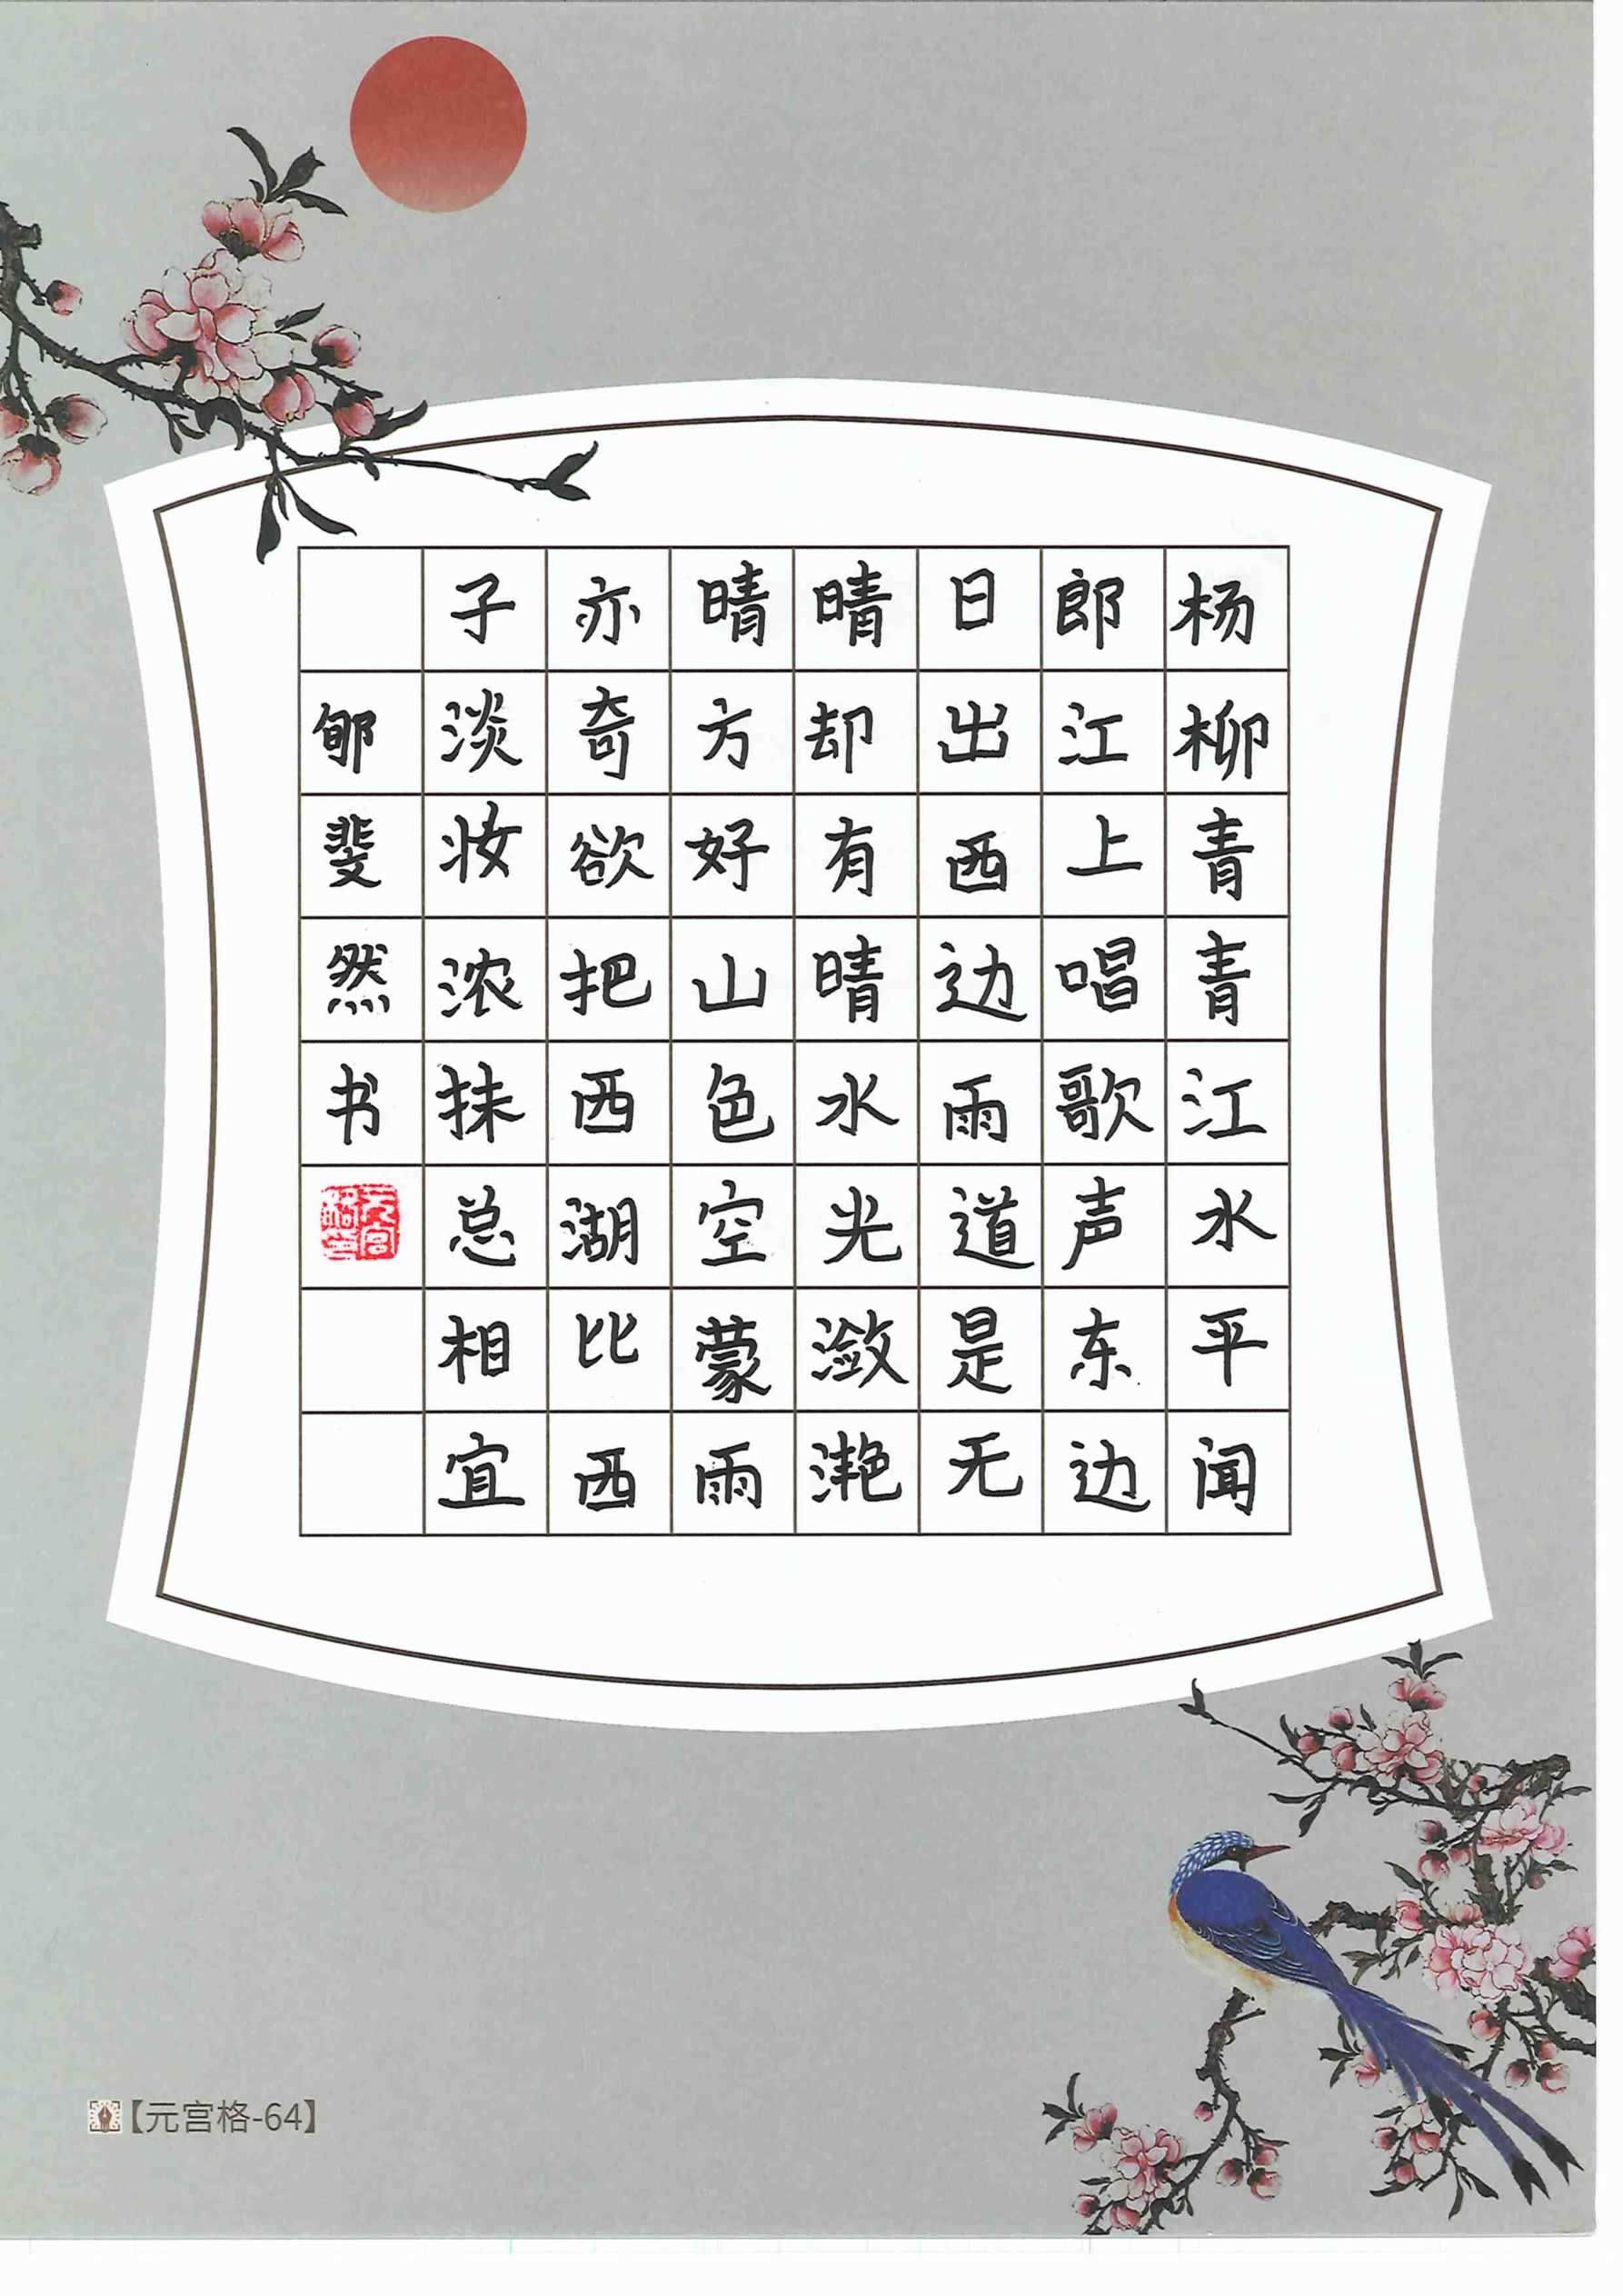 杨柳青青江水平闻
郎江上唱歌声东边
日出西边雨道是无
晴却有晴水光潋滟
晴方好山色空蒙雨
亦奇欲把西湖比西
子淡妆浓抹总相宜
郇斐然书
元宫格
【元宫格-64】